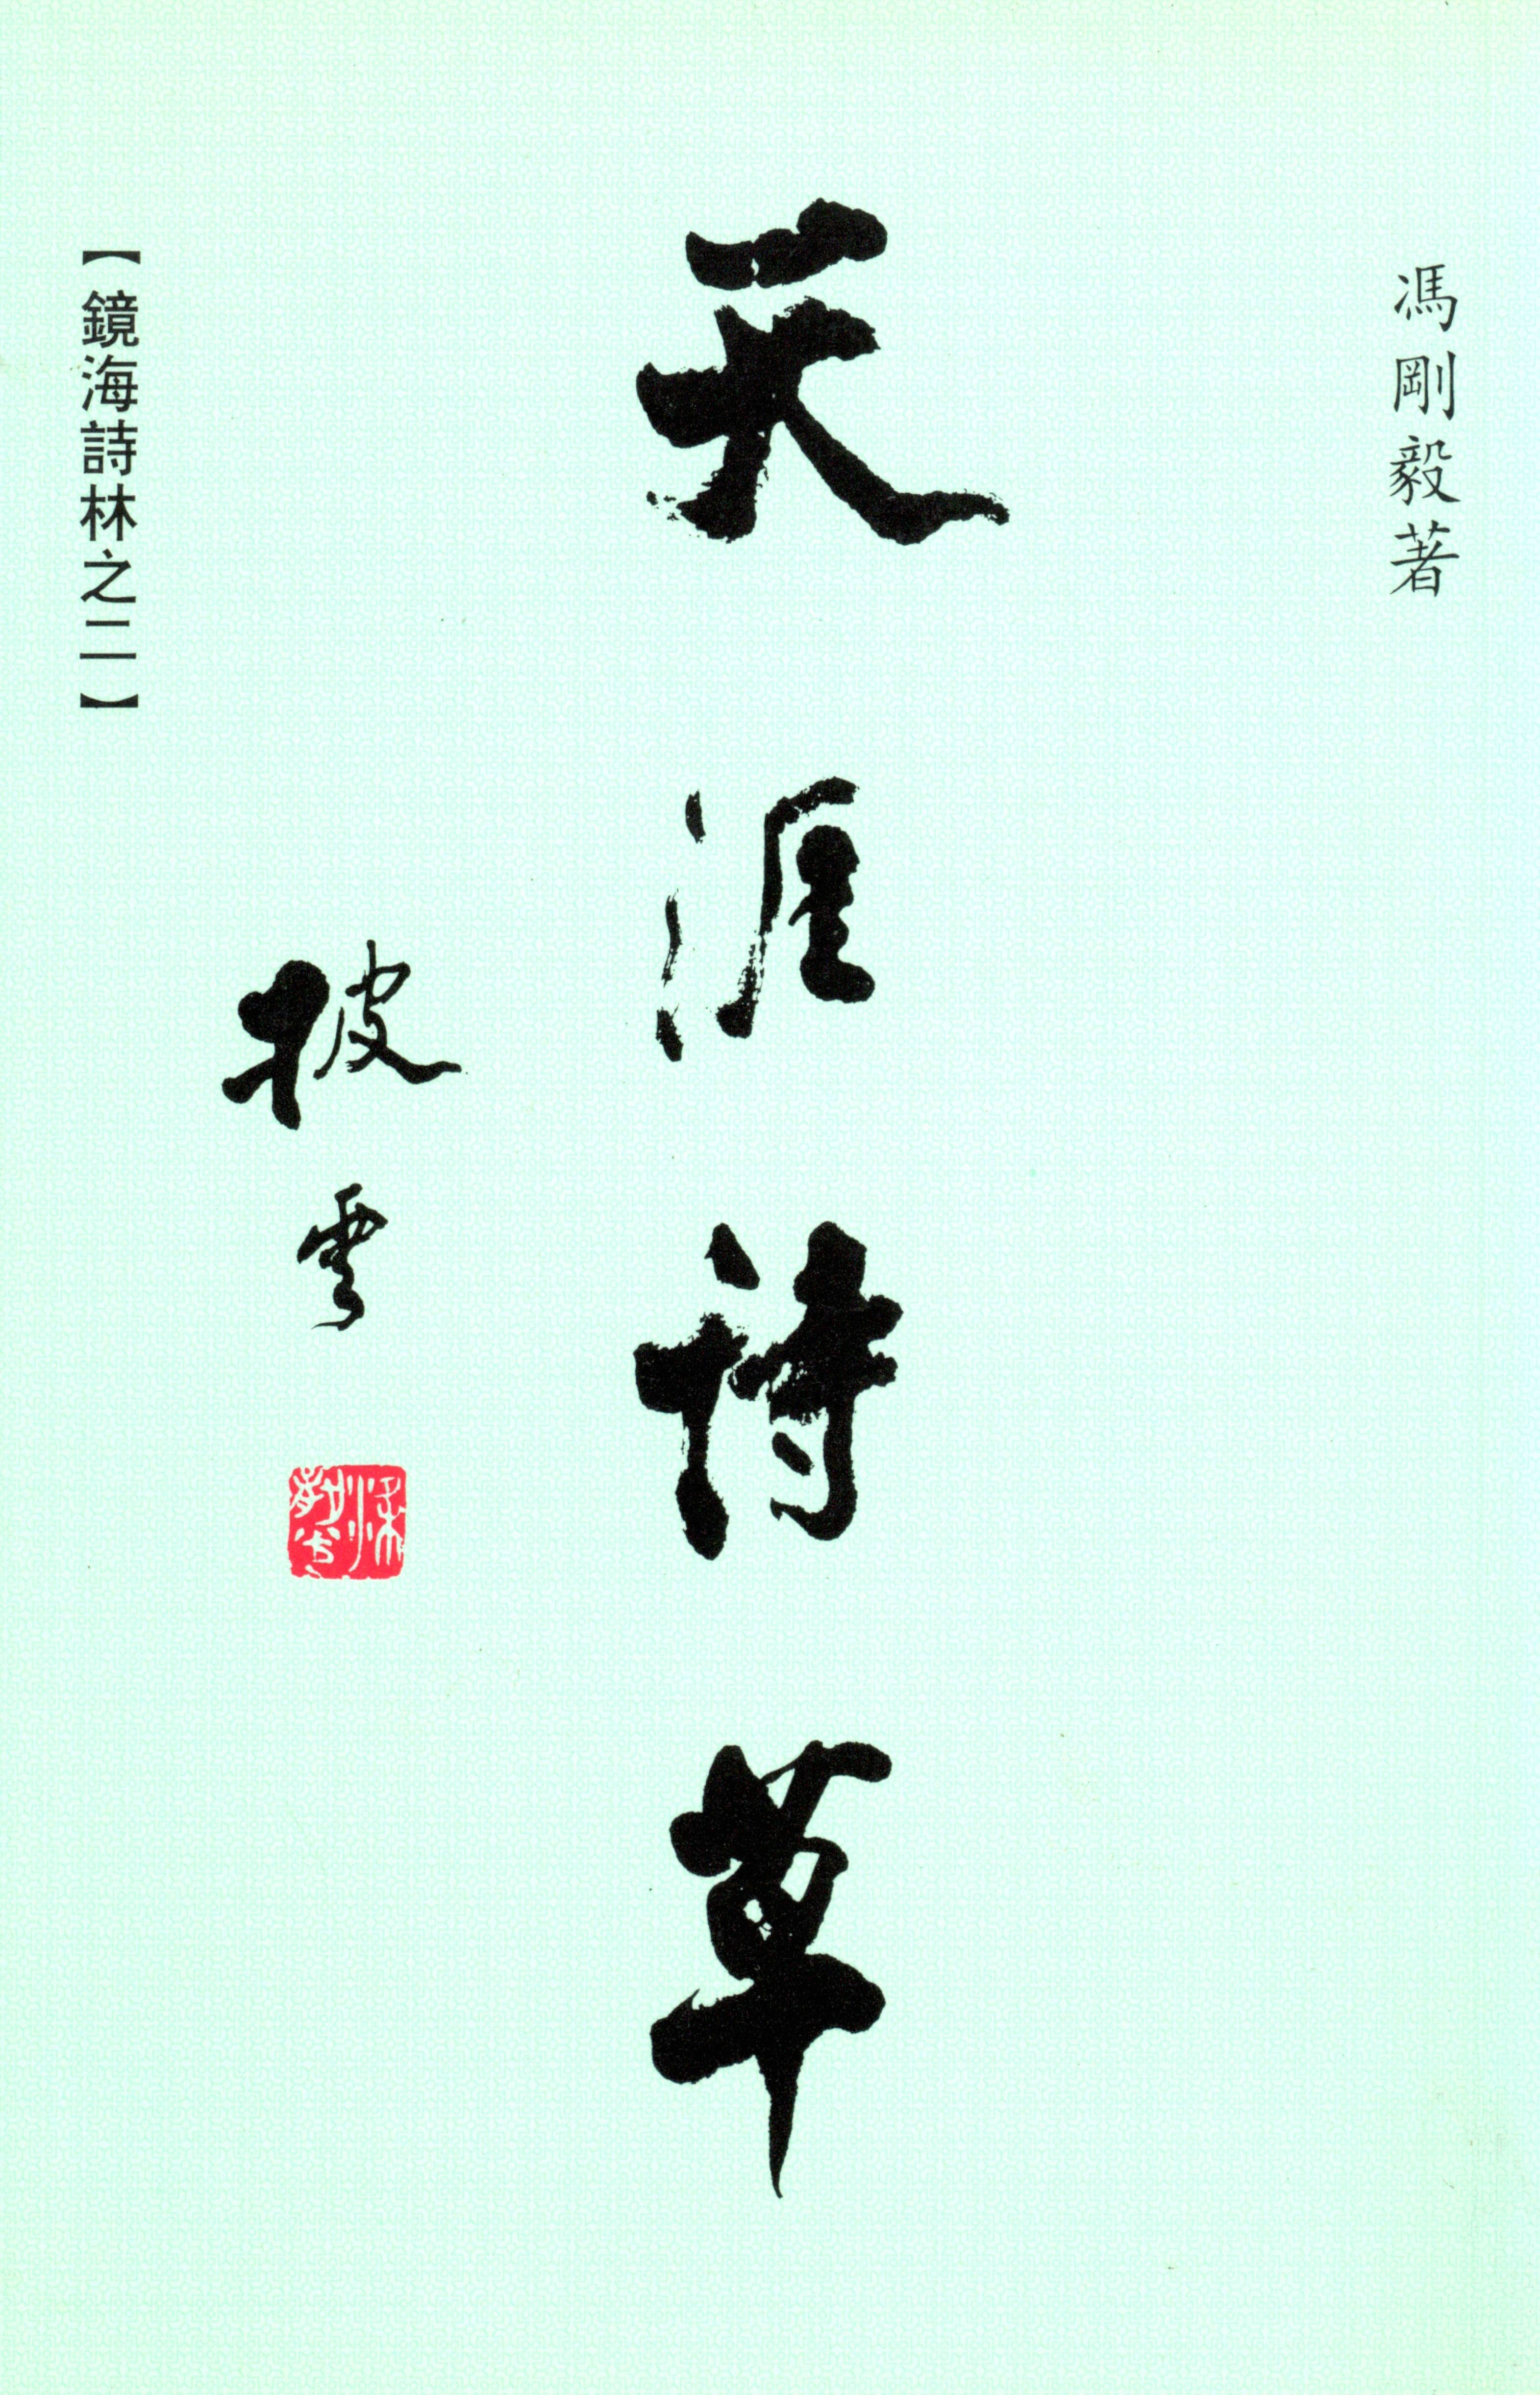 馮剛毅著
天涯詩草
披雲
【鏡海詩林之二】